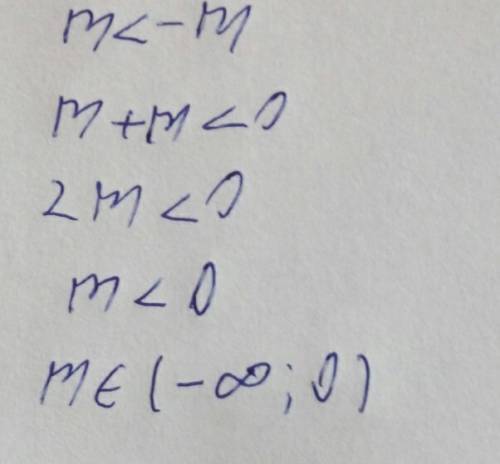 m<-m
m+m<0
2m<0
m<0
m∈(-∞;0)